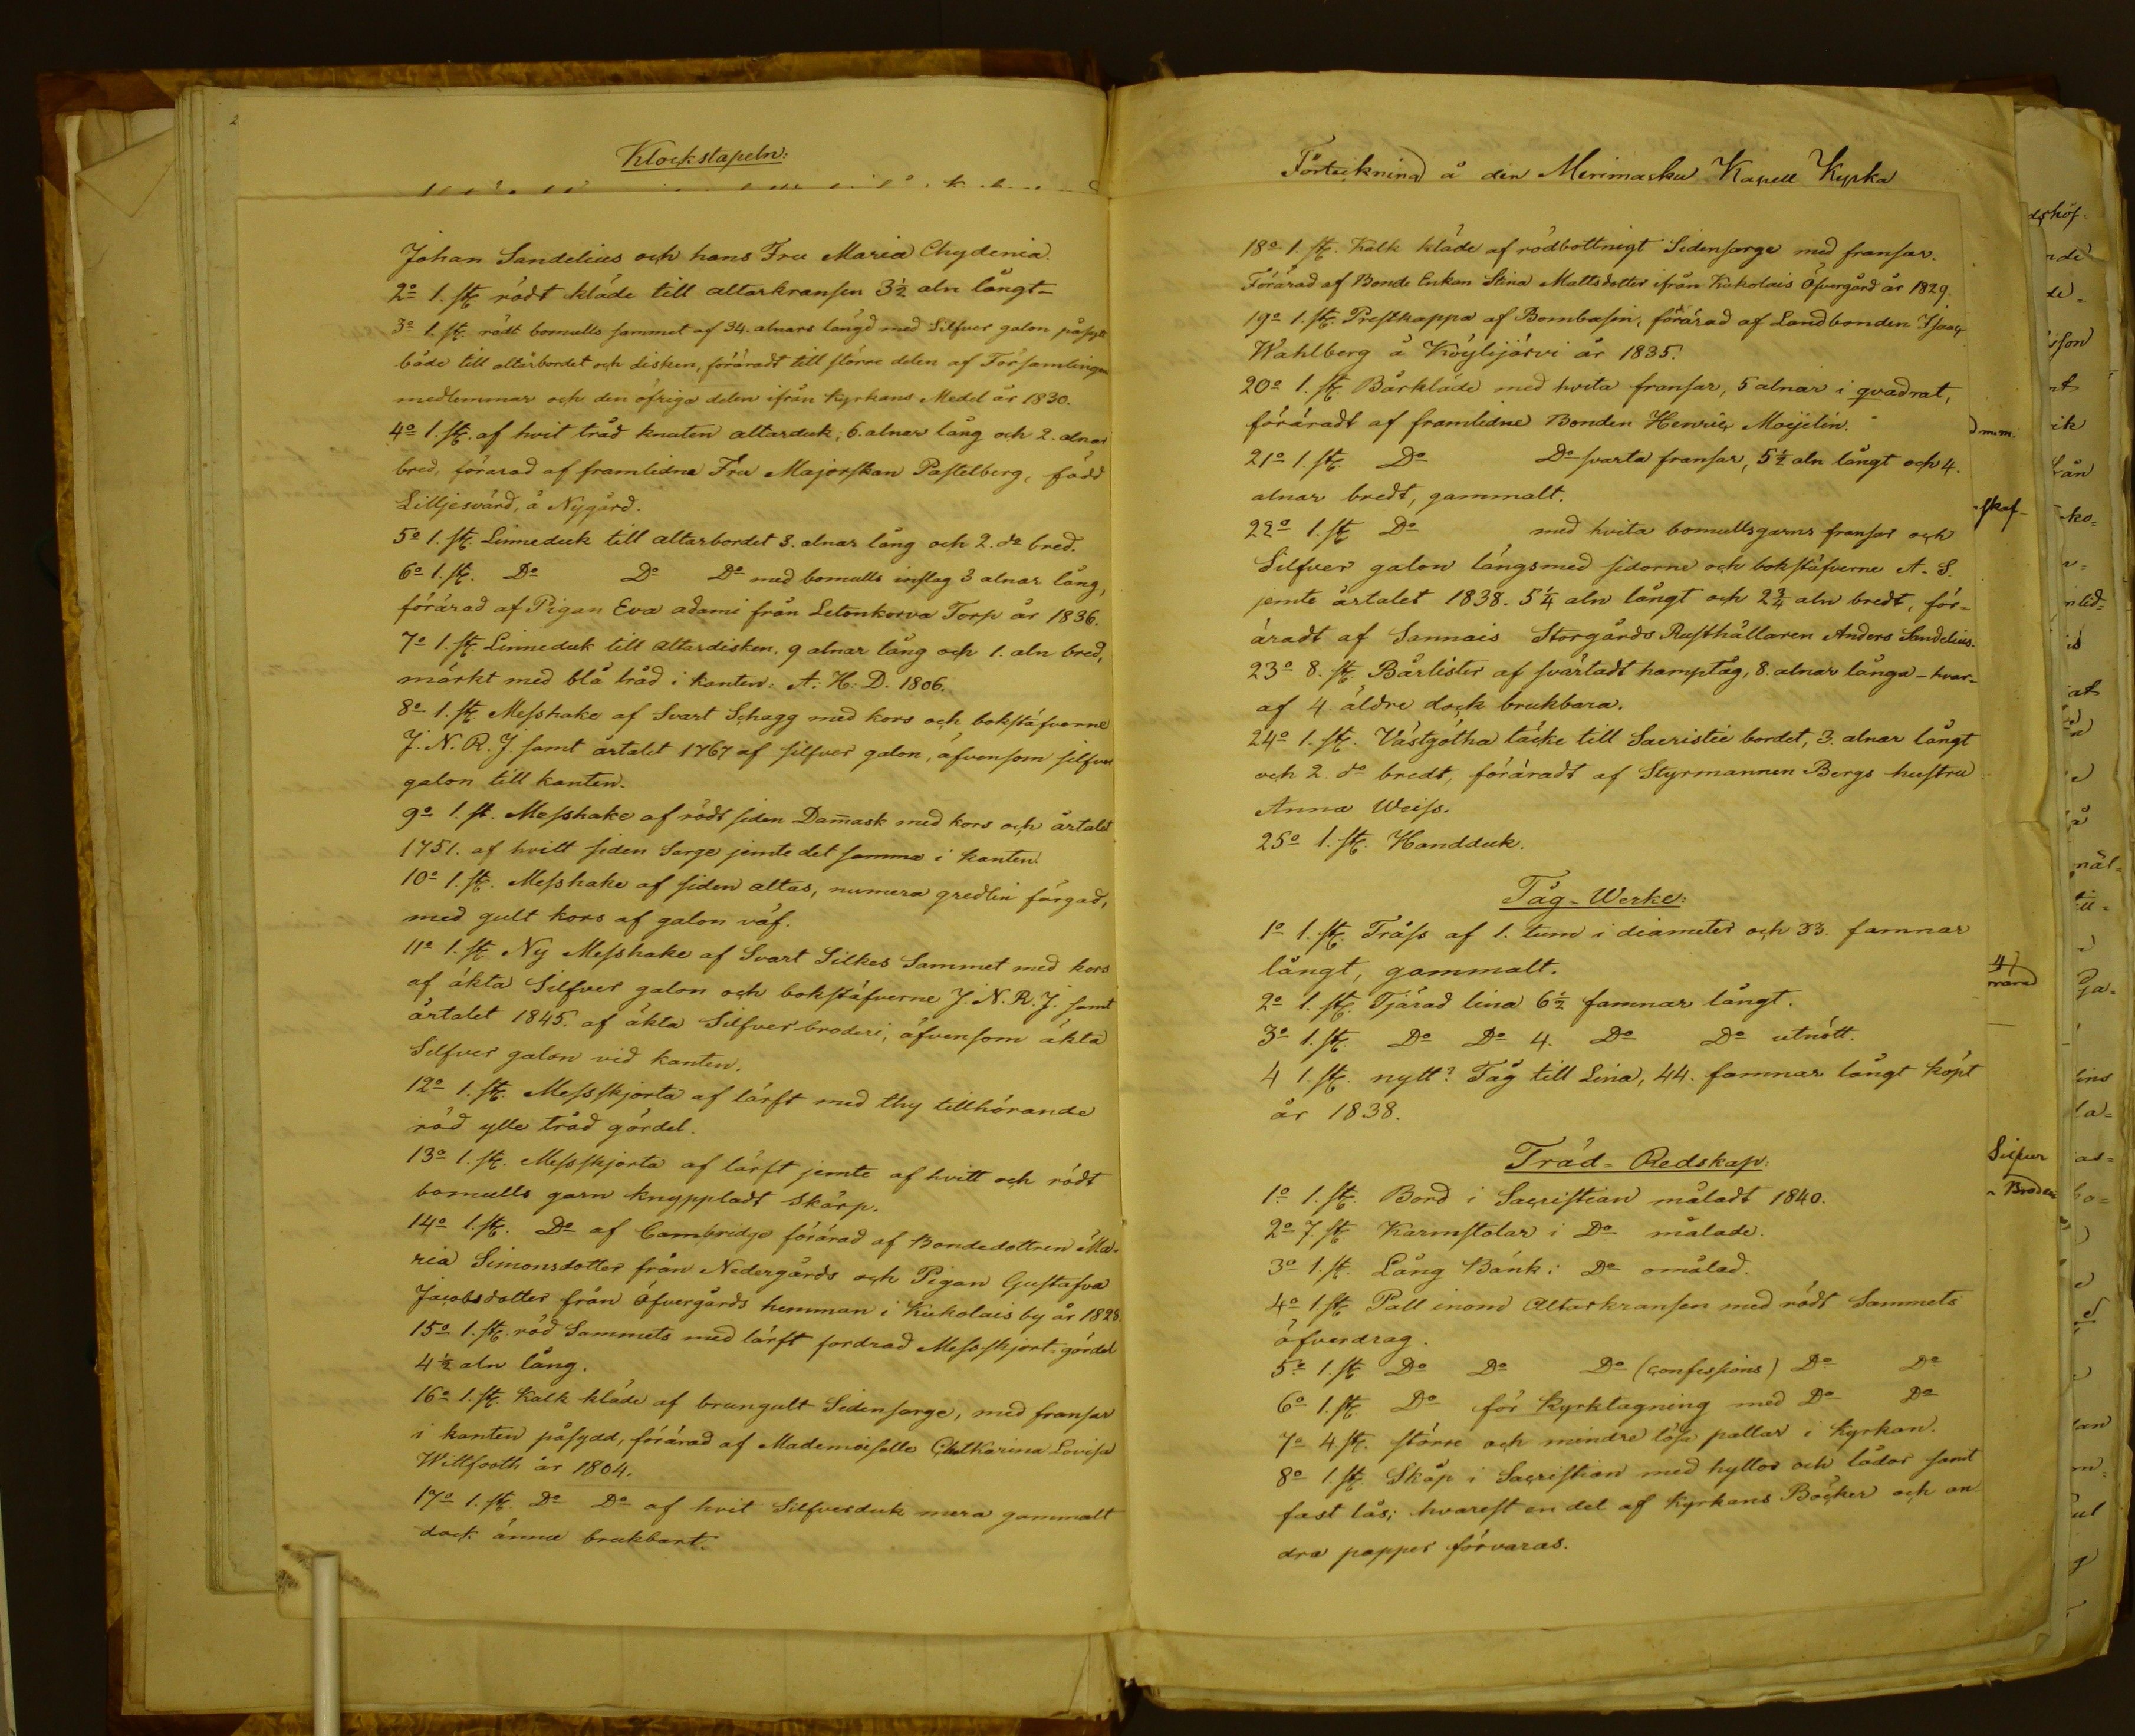 2
Klockstapeln:
Johan Sandelius och hans Fru Maria Chydenia.
2o 1. st. rödt kläde till altarkransen 3½ aln långt.
3o 1. st. rödt bomulls sammet af 34. alnars längd med Silfver galon påsydt
både till altarbordet och disken, föräradt till större delen af Församlingens
medlemmar och den öfriga delen ifrån Kyrkans Medel år 1830.
4o 1. st. af hvit tråd knuten altarduk, 6. alnar lång och 2. alnar
bred, förärad af framlidna Fru Majorskan Pastelberg, född
Lilljesvärd, å Nygård.
5o 1. st. Linneduk till altarbordet 3. alnar lång och 2. do bred.
6o 1. st. Do Do Do med bomulls inslag 3 alnar lång,
förärad af Pigan Eva adami från Letonkorva Torp år 1836.
7o 1. st. Linneduk till altardisken, 9 alnar lång och 1. aln bred,
märkt med blå tråd i kanten: A: H: D. 1806.
8o 1. st. Messhake af Svart Schagg med kors och bokstäfverne
J. N. R. J. samt årtalet 1767 af silfver galon, äfvensom silfver
galon till kanten.
9o 1. st. Messhake af rödt siden Damask med kors och årtalet
1751. af hvitt siden Sarge jemte det samma i kanten.
10o 1. st. Messhake af siden altas, numera gredlin färgad,
med gult kors af galon väf.
11o 1. st. Ny Messhake af Svart Silkes Sammet med kors
af äkta Silfver galon och bokstäfverne J. N. R. J. samt
årtalet 1845. af äkta Silfver broderi, äfvensom äkta
Silfver galon vid kanten.
12o 1. st. Messskjorta af lärft med thy tillhörande
röd ylle tråd gördel.
13o 1. st. Messskjorta af lärft jemte af hvitt och rödt
bomulls garn knyppladt Skärp.
14o 1. st. Do af Cambridge förärad af Bondedottren Ma-
ria Simonsdotter från Nedergårds och Pigan Gustafva
Jacobsdotter från Öfvergårds hemman i Kukolais by år 1828.
15o 1. st. röd Sammets med lärft fordrad Messskjort-gördel
4½ aln lång.
16o 1. st. Kalk kläde af brungult Sidensarge, med fransar
i kanten påsydd, förärad af Mademoiselle Chatharina Lovisa
Wittfooth år 1804.
17o 1. st. Do Do af hvit Silfverduk mera gammalt
dock ännu brukbart.
Förteckning å den Merimasku Kapell Kyrka
18o 1. st. Kalk kläde af rödbottnigt Sidensarge med fransar.
Förärad af Bonde Enkan Stina Mattsdotter ifrån Kukolais Öfvergård år 1829.
19o 1. st. Prestkappa af Bombasin, förärad af Landbonden Isaac
Wahlberg å Köylijärvi år 1835.
20o 1. st. Bårkläde med hvita fransar, 5 alnar i qvadrat,
föräradt af framlidne Bonden Henric Moijelin.
21o 1. st. Do Do svarta fransar, 5½ aln långt och 4.
alnar bredt, gammalt.
22o 1. st. Do med hvita bomullsgarns fransar och
Silfver galon längsmed sidorne och bokstäfverne A. S.
jemte årtalet 1838. 5¼ aln långt och 2¾ aln bredt, för-
äradt af Sannais Storgårds Rusthållaren Anders Sandelius.
23o 8. st. Bårlister af svärtadt hamptåg, 8. alnar långa - hvar-
af 4 äldre dock brukbara.
24o 1. st. Västgötha täcke till Sacristie bordet, 3. alnar långt
och 2. do bredt, förärradt af Styrmannen Bergs hustru
Anna Weiss.
25o 1. st. Handduk.
Tåg-Werke:
1o 1. st. Tråss af 1. tum i diameter och 33. famnar
långt, gammalt.
2o 1. st. Tjärad lina 6½ famnar långt.
3o 1. st. Do Do 4. Do Do utnött.
4 1. st. nytt? Tåg till Lina, 44. famnar långt köpt
år 1838.
Träd-Redskap:
1o 1. st. Bord i Sacristian måladt 1840.
2o 7. st. Karmstolar i Do målade.
3o 1. st. Lång Bänk i Do omålad.
4o 1. st. Pall inom Altarkransen med rödt Sammets
öfverdrag.
5o 1. st. Do Do Do (confessions) Do Do
6o 1. st. Do för Kyrktagning med Do Do
7o 4. st. större och mindre lösa pallar i Kyrkan.
8o 1. st. Skåp i Sacristian med hyllor och lådor samt
fast lås; hvarest en del af Kyrkans Böcker och an
dra papper förvaras.